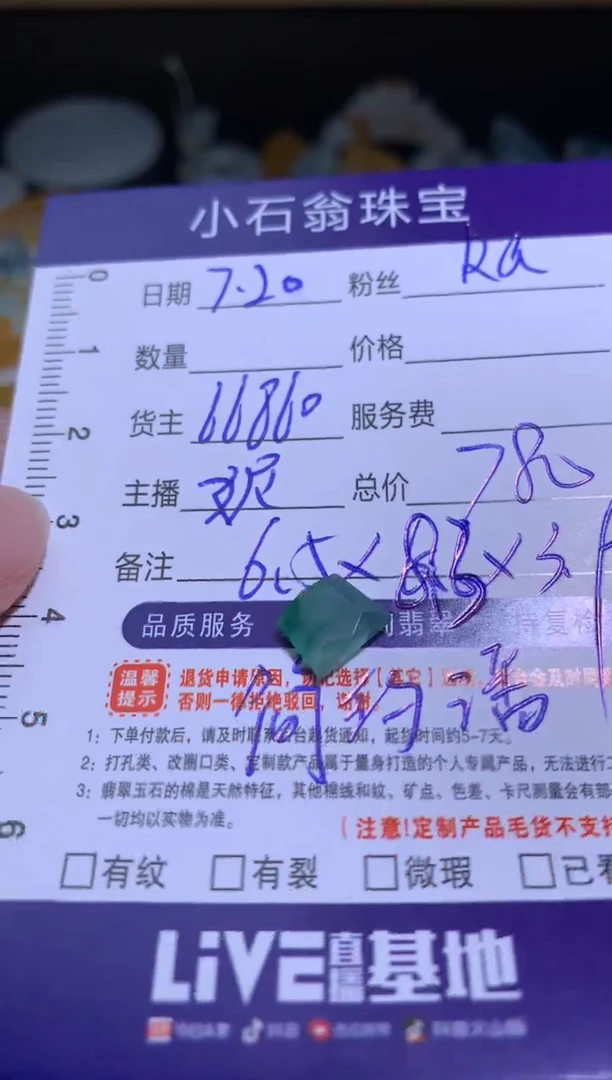 小石翁珠宝
日期 7.20 粉丝 Ka
数量 价格
货主 66860 服务费
主播 总价 78
备注 6.5×8.3×3.
品质服务 翡翠 复检
温馨提示
退货申请原因，切记选择【其它】
否则一律拒绝驳回，谢谢。
1：下单付款后，请及时联系后台起货通知，起货时间约5-7天。
2：打孔类、改圈口类、定制款产品属于量身打造的个人专属产品，无法进行
3：翡翠玉石的棉是天然特征，其他棉线和纹、矿点、色差、卡尺测量会有部
一切均以实物为准。
（注意!定制产品毛货不支
有纹 有裂 微瑕 已看
LiVE直播基地
0
1
2
3
4
5
6